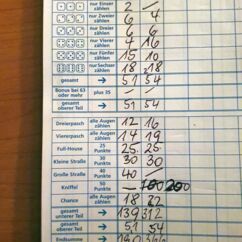 nur Einer zählen 2 —
nur Zweier zählen 6 4
nur Dreier zählen 6 6
nur Vierer zählen 4 16
nur Fünfer zählen 15 10
nur Sechser zählen 18 18
gesamt 51 54
Bonus bei 63 oder mehr plus 35 — —
gesamt oberer Teil 51 54
Dreierpasch alle Augen zählen 12 16
Viererpasch alle Augen zählen 14 19
Full-House 25 Punkte 25 25
Kleine Straße 30 Punkte 30 30
Große Straße 40 Punkte 40 —
Kniffel 50 Punkte — 200
Chance alle Augen zählen 18 22
gesamt unterer Teil 139 312
gesamt oberer Teil 51 54
Endsumme